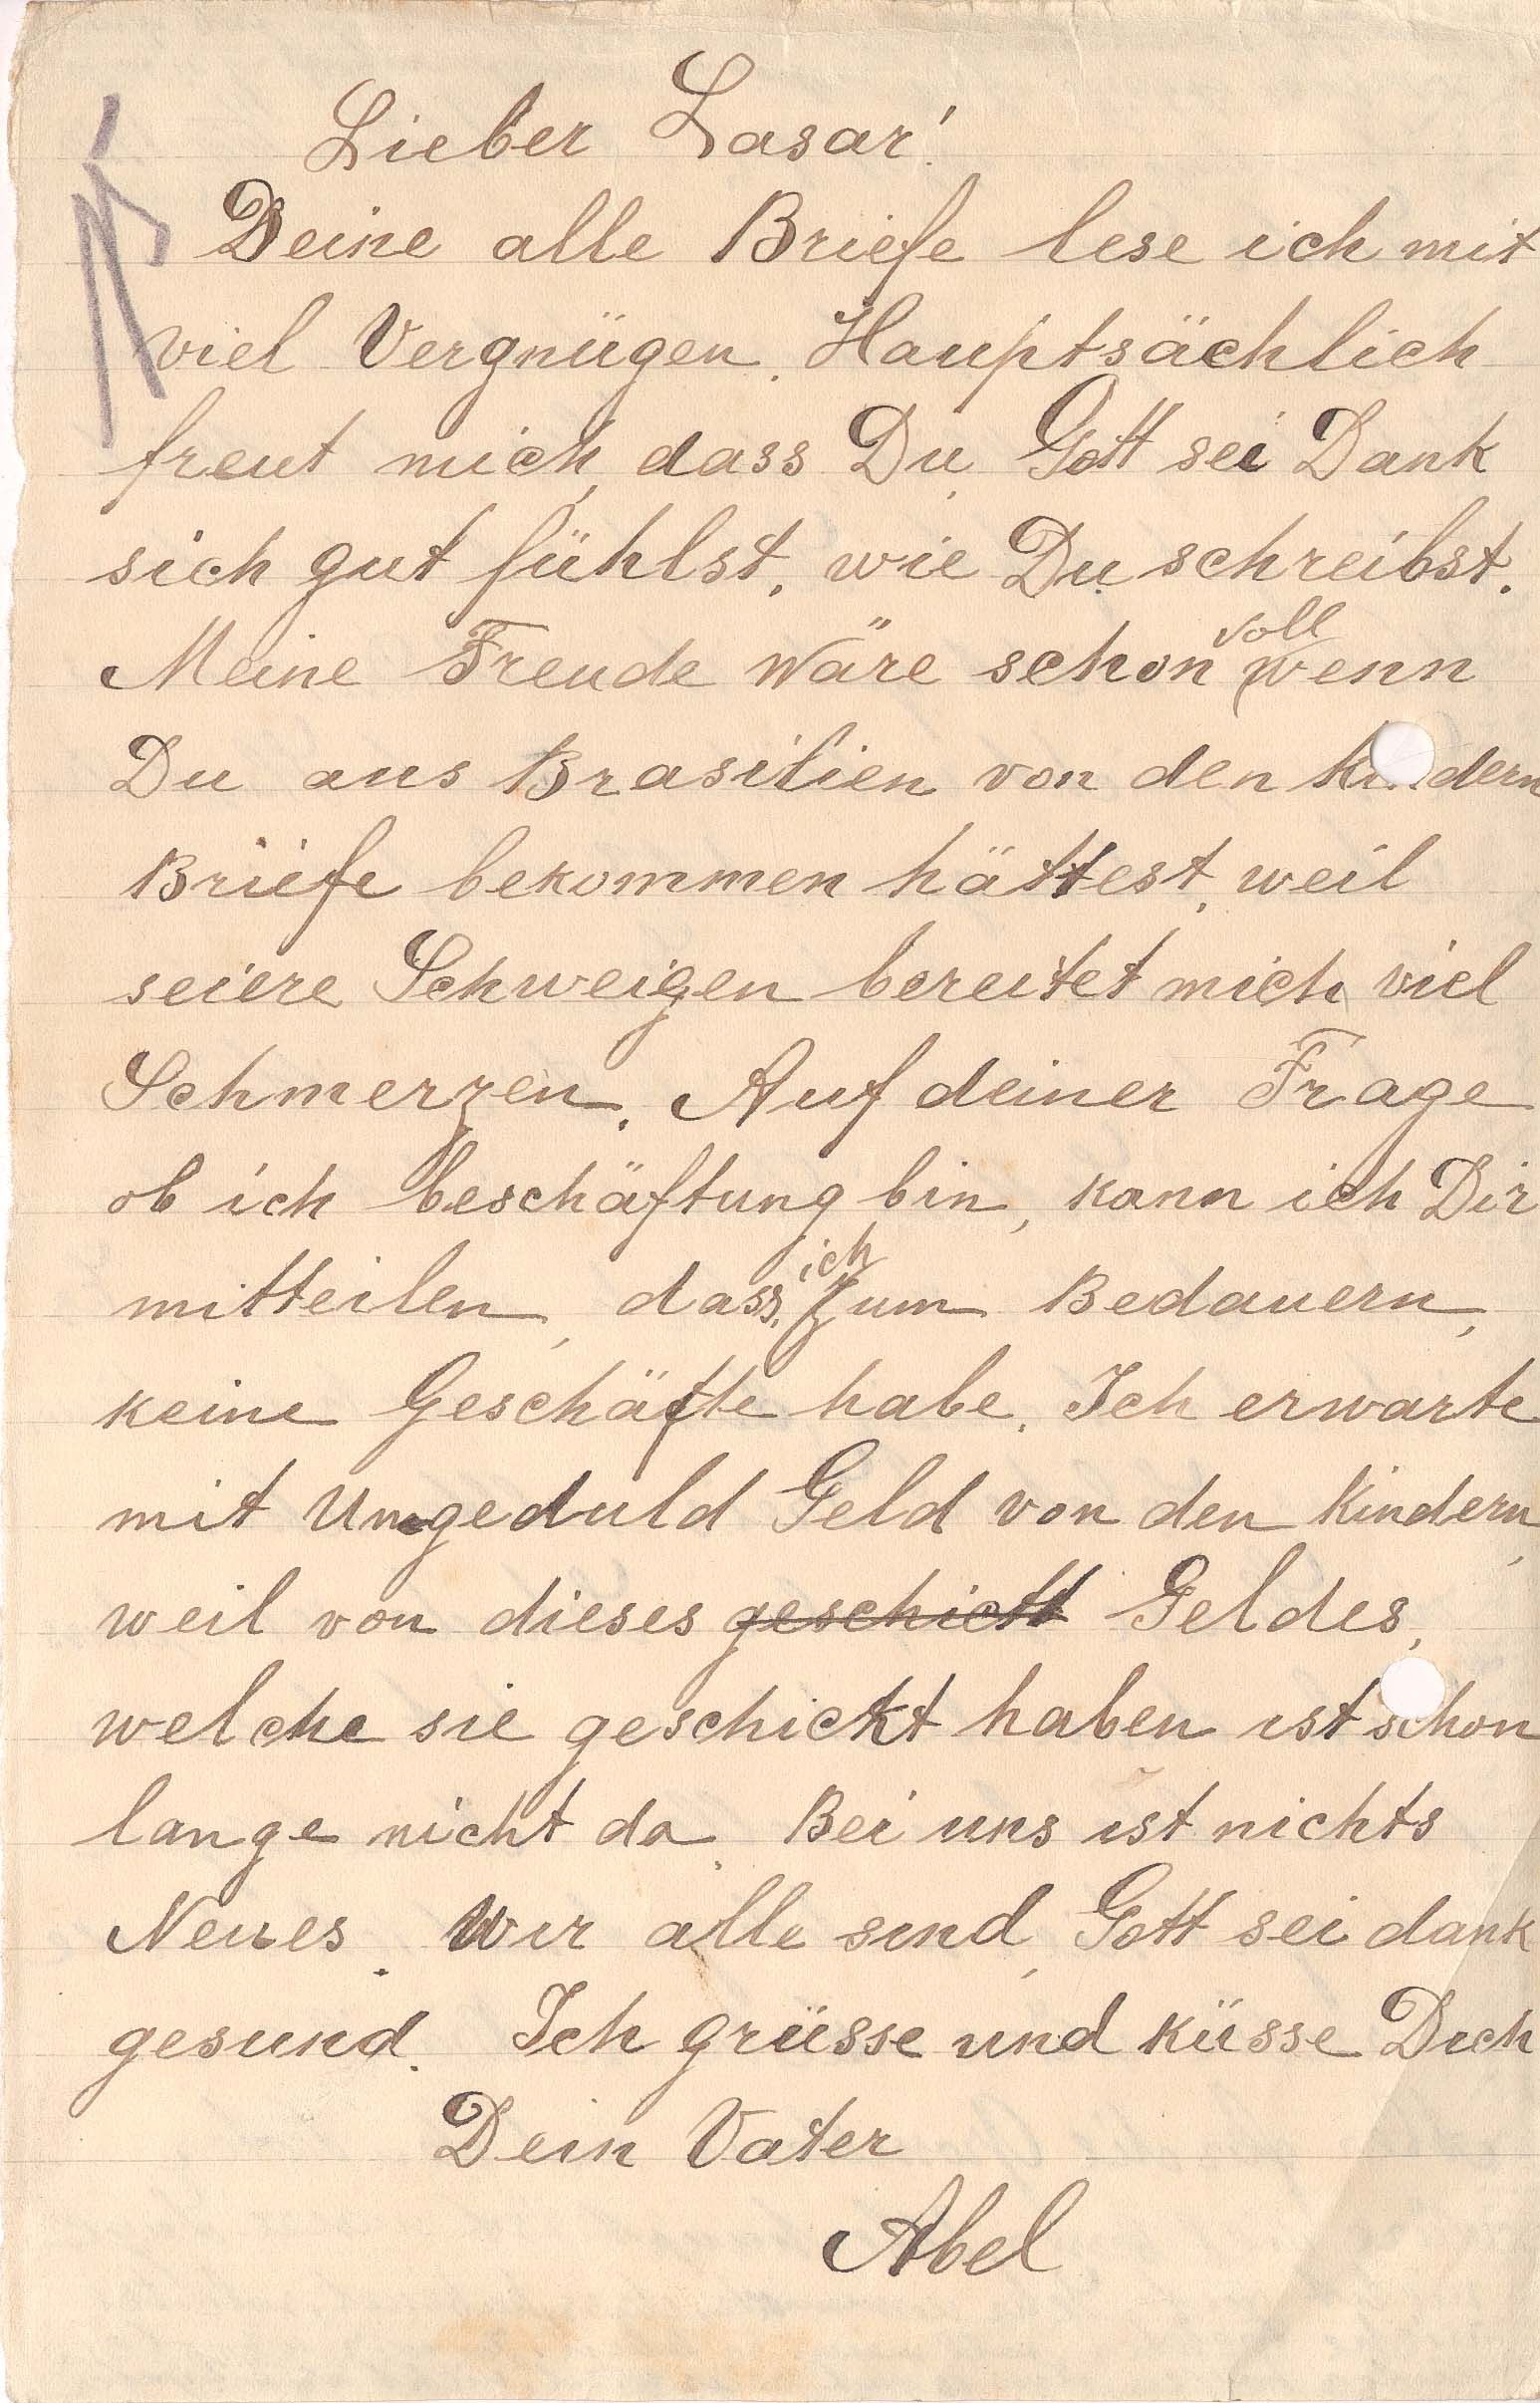 Lieber Lasar!
Deine alle Briefe lese ich mit
viel Vergnügen. Hauptsächlich
freut mich, dass Du, Gott sei Dank
sich gut fühlst, wie Du schreibst.
Meine Freude wäre schon voll wenn
Du aus Brasilien von den Kindern
Briefe bekommen hättest, weil
seiere Schweigen bereitet mich viel
Schmerzen. Auf deiner Frage
ob ich beschäftung bin, kann ich Dir
mitteilen, dass, ich zum Bedauern,
keine Geschäfte habe. Ich erwarte
mit Ungeduld Geld von den Kindern,
weil von dieses geschickt Geldes,
welche sie geschickt haben ist schon
lange nicht da. Bei uns ist nichts
Neues. Wir alle sind, Gott sei dank
gesund. Ich grüsse und küsse Dich
Dein Vater
Abel